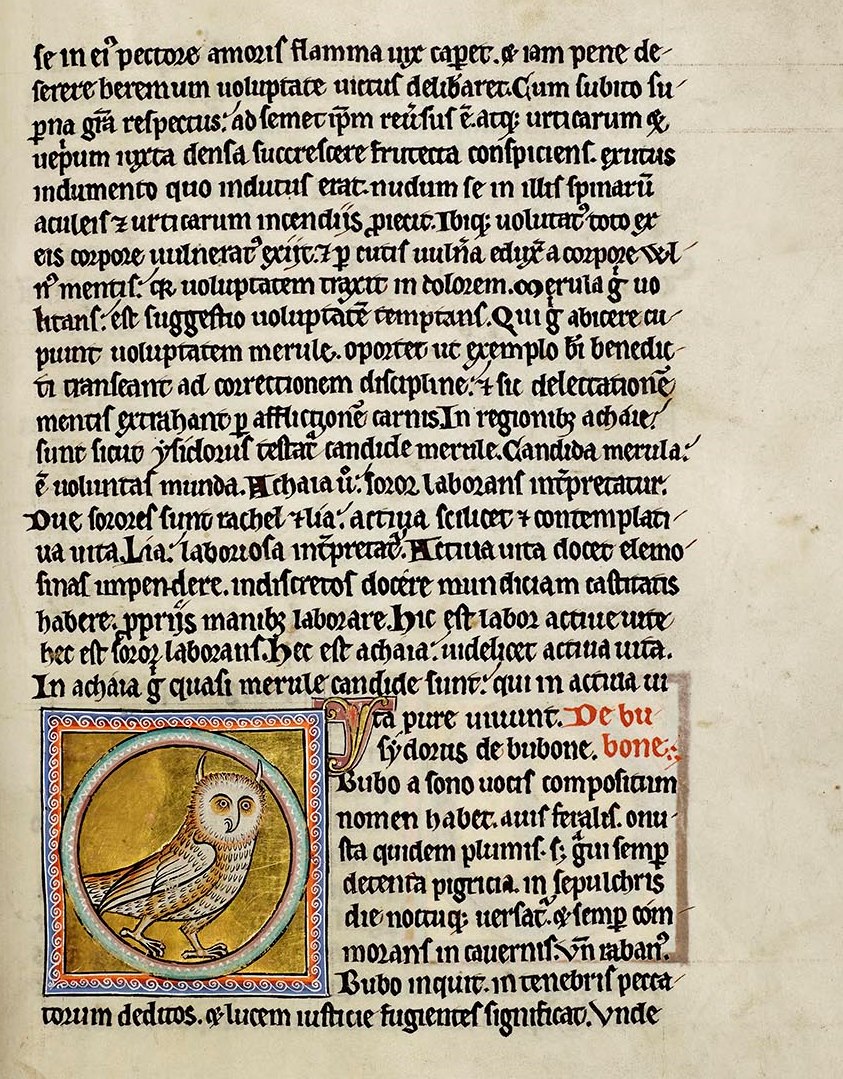 se in eiꝰ pectore amoris flamma uix caperet. & iam pene de-
serere heremum uoluptate uictus deliƀaret. Cum subito su-
ꝑna gr̃a respectus: ad semetip̃m reuũsus ẽ. atq; urticarum &
uepͥum iuxta densa succrescere frutecta conspiciens. exutus
indumento quo indutus erat. nudum se in illis spinarũ
aculeis ⁊ urticarum incendijs ꝓiecit. Ibiq; uolutatꝰ toto ex
eis corpore uulneratꝰ exijt. ⁊ ꝑ cutis uulña eduxͭ a corpore uul-
nꝰ mentis: qͥa uoluptatem traxit in dolorem. Merula gͥ uo
litans: est suggestio uoluptatẽ temptans. Qui gͥ abicere cu-
piunt uoluptatem merule. oportet ut exemplo b̃i benedic-
ti transeant ad correctionem discipline: ⁊ sic delectationẽ
mentis extrahant ꝑ afflictionẽ carnis. In regionibꝫ achaie:
sunt sicut ysidorus testatͬ candide merule. Candida merula:
ẽ uoluntas munda. Achaia ů: soror laborans int̃pretatur.
Due sorores sunt rachel ⁊ lia: actiua scilicet ⁊ contemplati-
ua uita. Lia: laboriosa int̃pretatͬ. Actiua uita docet elemo-
sinas impendere. indiscretos docere mundiciam castitatis
habere. ꝓprijs manibꝫ laborare. Hic est labor actiue uite
hec est soror laborans. Hec est achaia: uidelicet actiua uita.
In achaia gͥ quasi merule candide sunt: qui in actiua ui
ta pure uiuunt. De bu
Ysydorus de bubone. bone:
Bubo a sono uocis compositum
nomen habet. auis feralis. onu-
sta quidem plumis. s; gͣui semꝑ
detenta pigricia. in sepulchris
die noctuq; uersatͬ. & semꝑ com-
morans in cauernis. Vñ rabanꝰ.
Bubo inquit. in tenebris pecca-
torum deditos. & lucem iusticie fugientes significat. Vnde